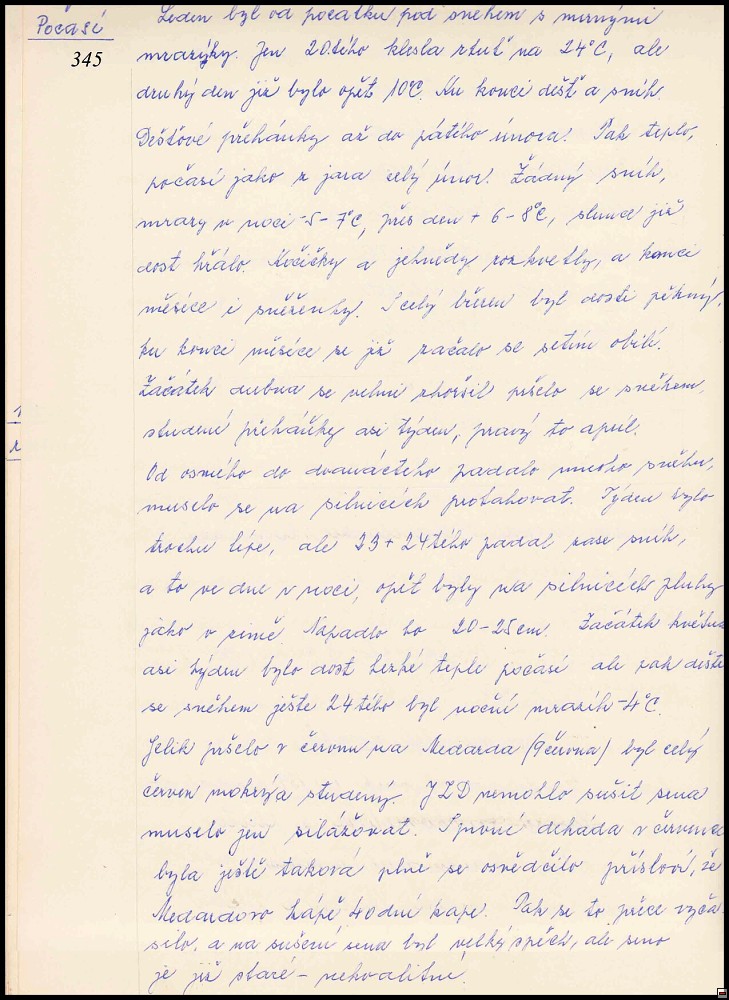 Počasí
345
Leden byl od počátku pod sněhem s mírnými
mrazíky. Jen 20tého klesla rtuť na 24°C, ale
druhý den již bylo opět 10°C. Ku konci déšť a sníh.
Dešťové přehánky až do pátého února. Pak teplo,
počasí jako z jara celý únor. Žádný sníh,
mrazy v noci -5 - 7°C, přes den + 6 - 8°C, slunce již
dost hřálo. Kočičky a jehnědy rozkvetly, a konci
měsíce i sněženky. I celý březen byl dosti pěkný,
ku konci měsíce se již začalo se setím obilí.
Začátek dubna se velmi zhoršil pršelo se sněhem,
studené přeháňky asi týden, pravý to apríl.
Od osmého do dvanáctého padalo mnoho sněhu,
muselo se na silnicích protahovat. Týden bylo
trochu lépe, ale 23 + 24tého padal zase sníh,
a to ve dne v noci, opět byly na silnicích pluhy
jako v zimě Napadlo ho 20-25cm. Začátek května
asi týden bylo dost hezké teplé počasí ale pak deště
se sněhem ješte 24tého byl noční mrazík -4°C.
Jelik pršelo v červnu na Medarda (9června) byl celý
červen mokrý a studený. JZD nemohlo sušit sena
muselo jen silážovat. I první dekáda v červenci
byla ještě taková plně se osvědčilo přísloví, že
Medardovo kápě 40 dní kape. Pak se to přece vyča
silo, a na sušení sena byl velký spěch, ale seno
je již staré - nekvalitní.